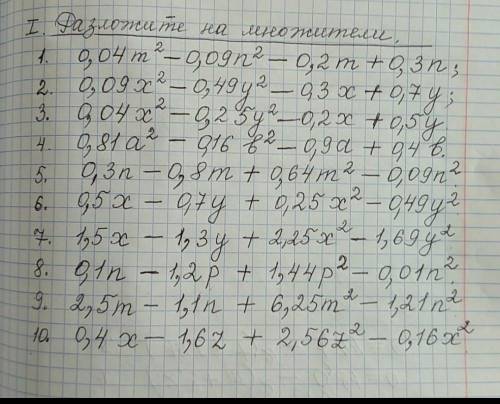 I. Разложите на множители.
1. 0,04m² – 0,09n² – 0,2m + 0,3n;
2. 0,09x² – 0,49y² – 0,3x + 0,7y;
3. 0,04x² – 0,25y² – 0,2x + 0,5y
4. 0,81a² – 0,16b² – 0,9a + 0,4b.
5. 0,3n – 0,8m + 0,64m² – 0,09n²
6. 0,5x – 0,7y + 0,25x² – 0,49y²
7. 1,5x – 1,3y + 2,25x² – 1,69y²
8. 0,1n – 1,2p + 1,44p² – 0,01n².
9. 2,5m – 1,1n + 6,25m² – 1,21n²
10. 0,4x – 1,6z + 2,56z² – 0,16x²